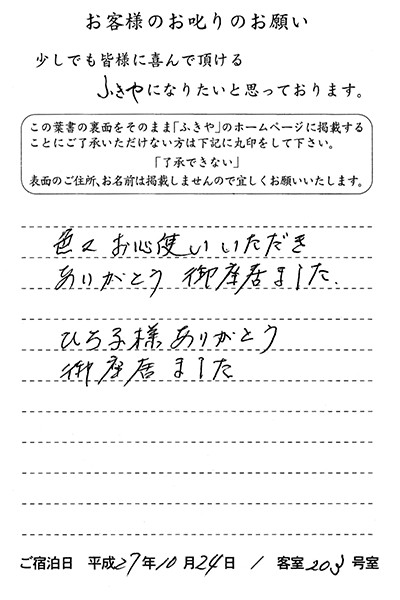 お客様のお叱りのお願い
少しでも皆様に喜んで頂ける
ふきやになりたいと思っております。
この葉書の裏面をそのまま「ふきや」のホームページに掲載する
ことにご了承いただけない方は下記に丸印をして下さい。
「了承できない」
表面のご住所、お名前は掲載しませんので宜しくお願いいたします。
色々お心使いいただき
ありがとう御座居ました.
ひろ子様ありがとう
御座居ました
ご宿泊日 平成27年10月24日 / 客室203号室